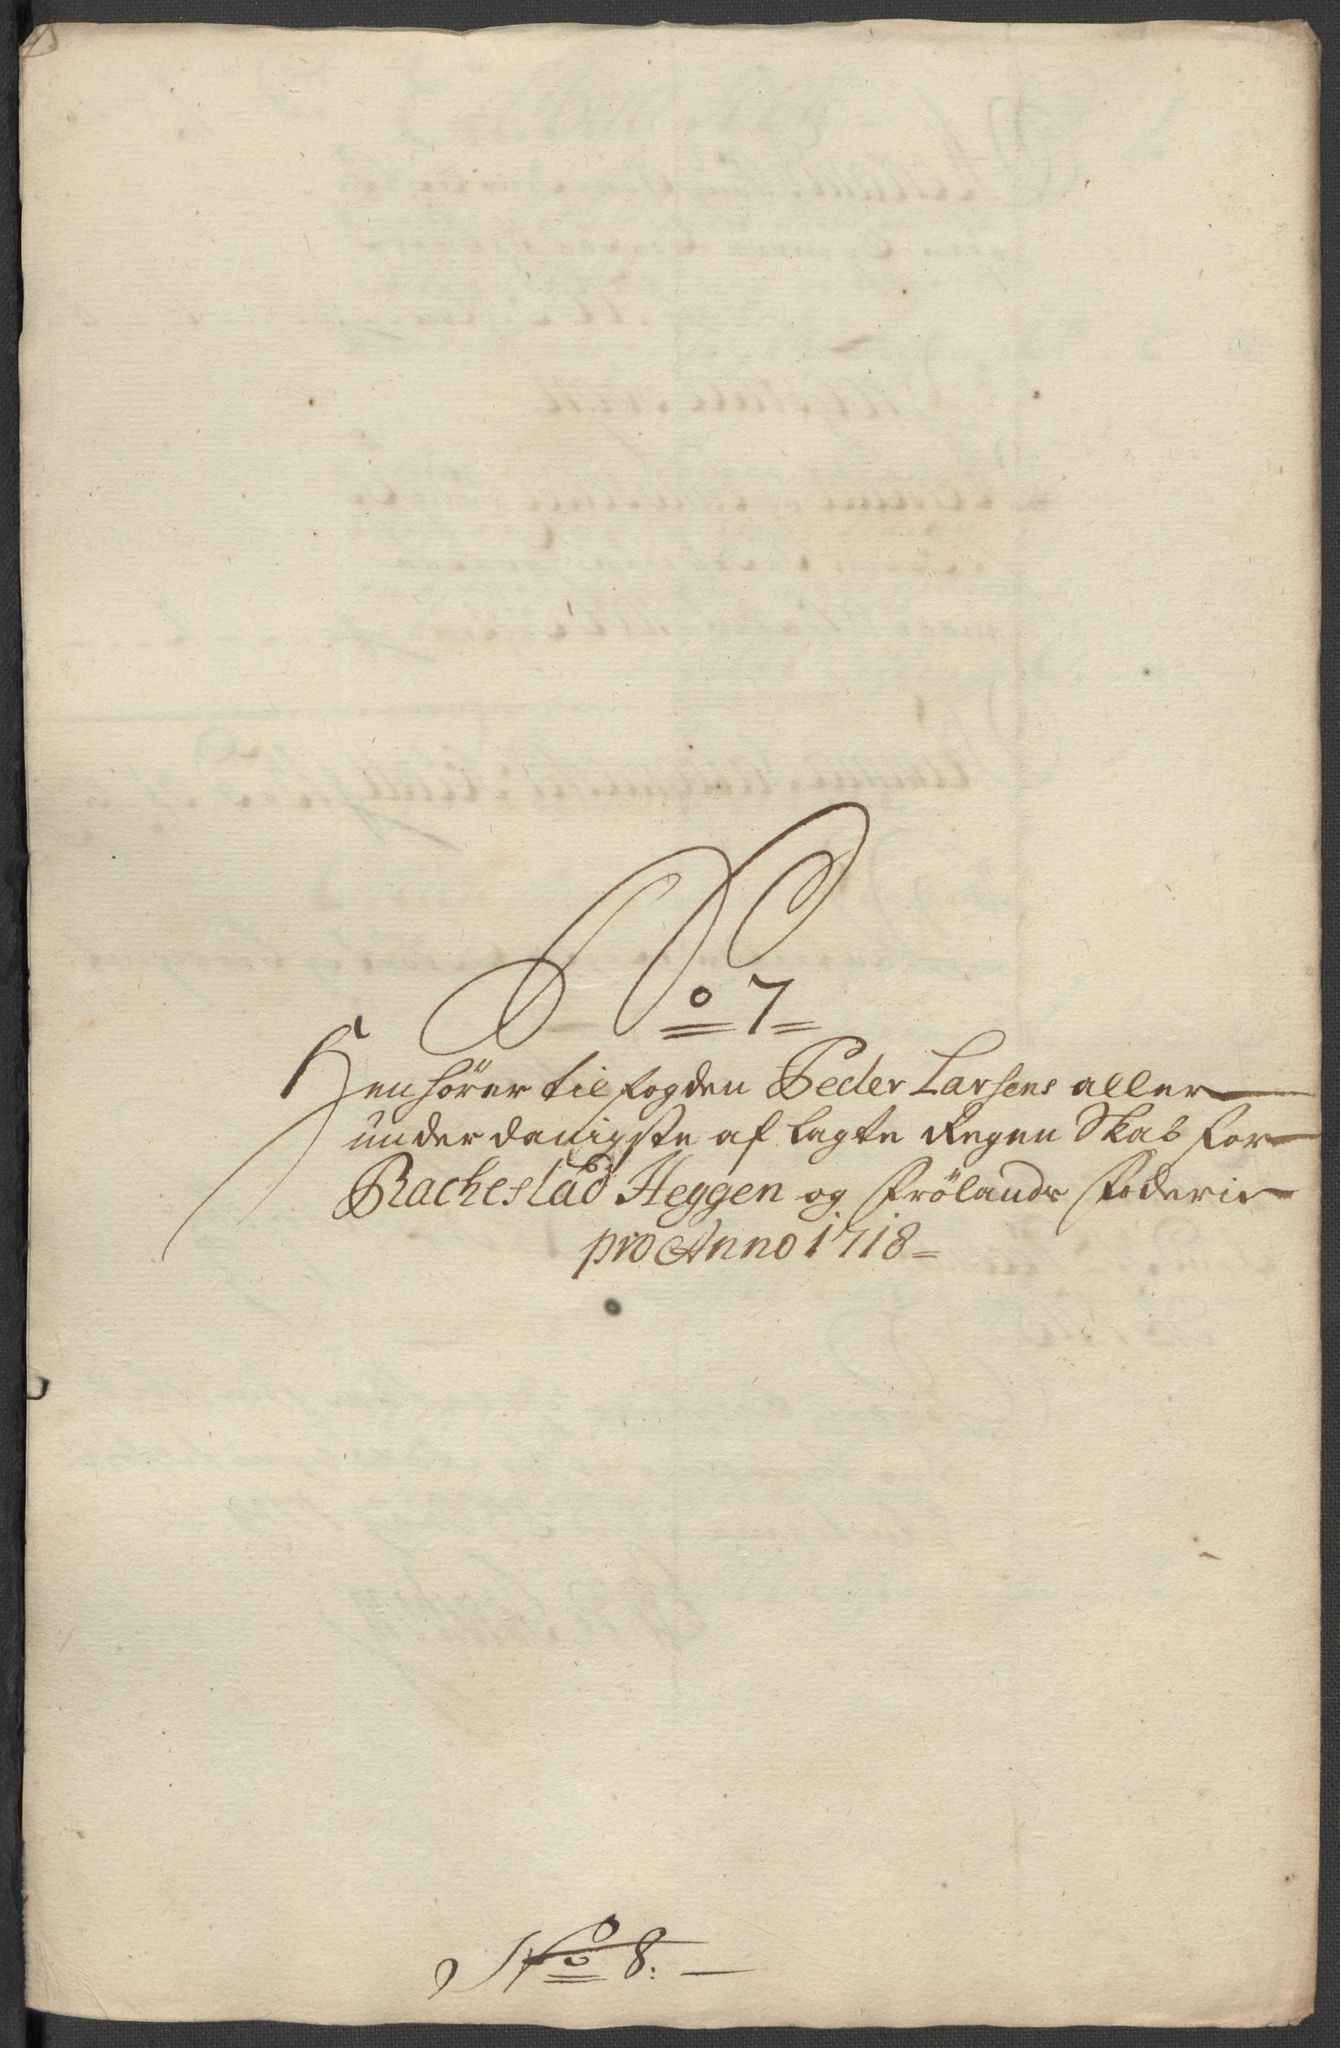 No 7
Henhörer til fogden Peder Larsens aller
underdanigste aflagte RegenSkab for
Rachestad Heggen og Frölands foderie
pro Anno 1718
No 8: